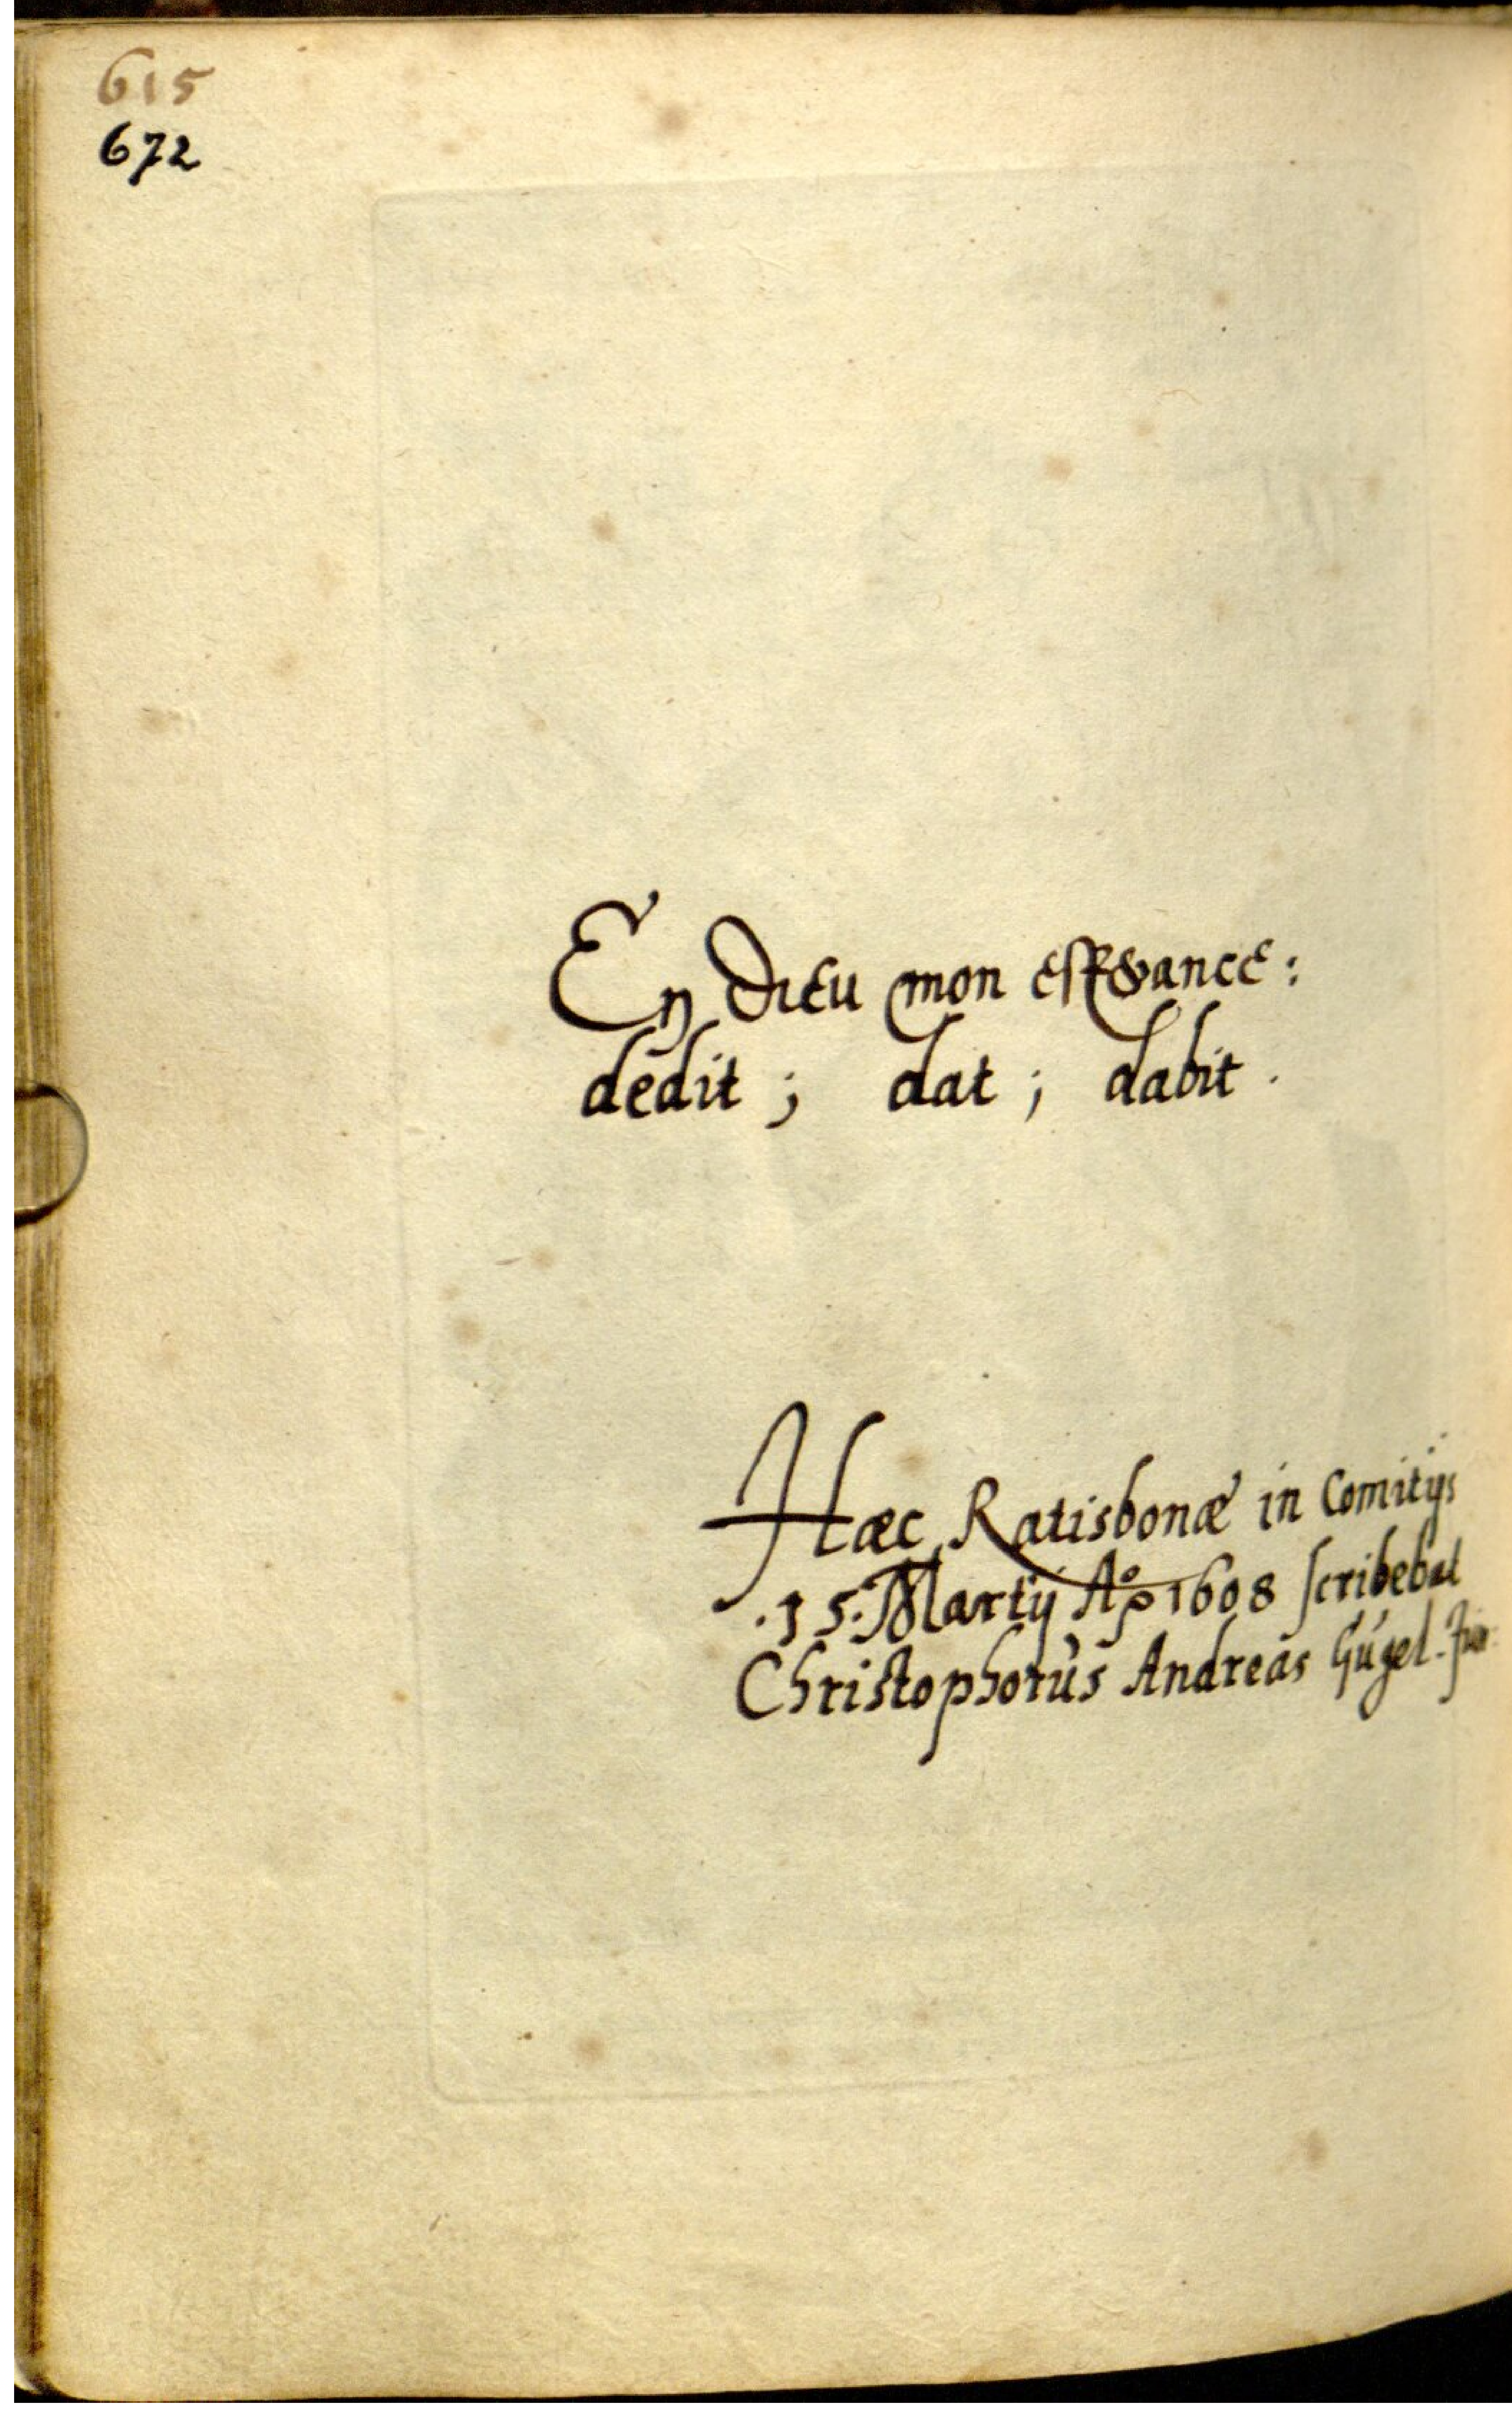 615
672
En Dieu mon esperance:
dedit; dat; dabit.
Hæc Ratisbonæ in Comitijs
.15. Martij Aº 1608 scribebat
Christophorus Andreas Gugel. Jun: